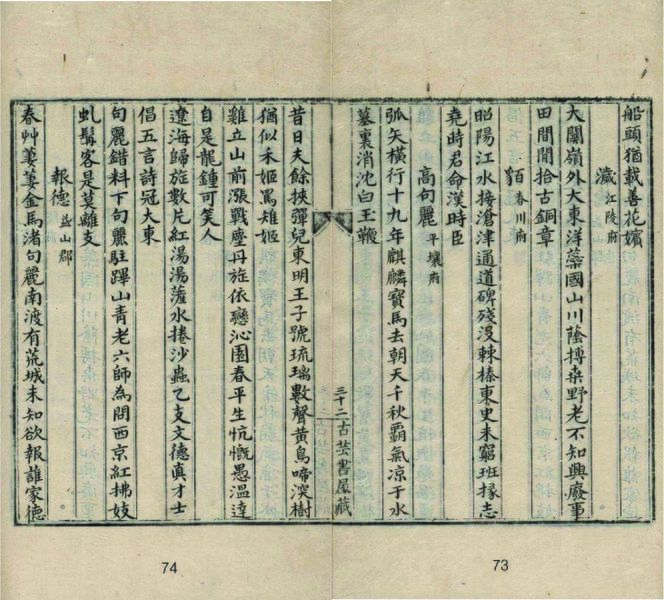 船頭猶載善花嬪
濊 江陵府
大關嶺外大東洋蘂國山川蔭搏桑野老不知興廢事
田間閒拾古銅章
貊 春川府
昭陽江水接滄津通道碑殘沒棘榛東史未窮班掾志
堯時君命漢時臣
高句麗 平壤府
弧矢橫行十九年麒麟寶馬去朝天千秋霸氣凉于水
墓裏消沈白玉鞭
三十二古芸書屋藏
昔日夫餘挾彈兒東明王子號琉璃數聲黃鳥啼深樹
猶似禾姬罵雉姬
雞立山前漲戰塵丹旐依戀沁園春平生忼慨愚溫達
自是龍鍾可笑人
遼海歸旌數片紅湯湯薩水捲沙蟲乙支文德真才士
倡五言詩冠大東
句麗錯料下句麗駐蹕山青老六師為問西京紅拂妓
虬髯客是莫離支
報德 益山郡
春艸萋萋金馬渚句麗南渡有荒城未知欲報誰家德
73
74